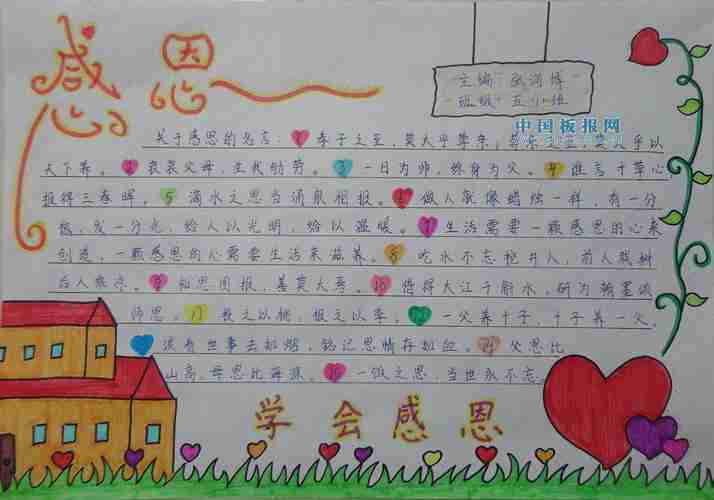 感恩
主编:张润博
班级:五(1)班
中国板报网
关于感恩的名言:1 孝子之至,莫大乎尊亲,尊亲之至,莫大乎以
天下养。2 哀哀父母,生我劬劳。3 一日为师,终身为父。4 谁言寸草心,
报得三春晖。5 滴水之恩当涌泉相报。6 做人就像蜡烛一样,有一分
热,发一分光,给人以光明,给以温暖。7 生活需要一颗感恩的心来
创造,一颗感恩的心需要生活来滋养。8 吃水不忘挖井人,前人栽树
后人乘凉。9 知恩图报,善莫大焉。10
师恩。11 投之以桃,报之以李。12 一父养十子,十子养一父。
父恩比
山高,母恩比海深。15 一饭之恩,当世永不忘。
学会感恩